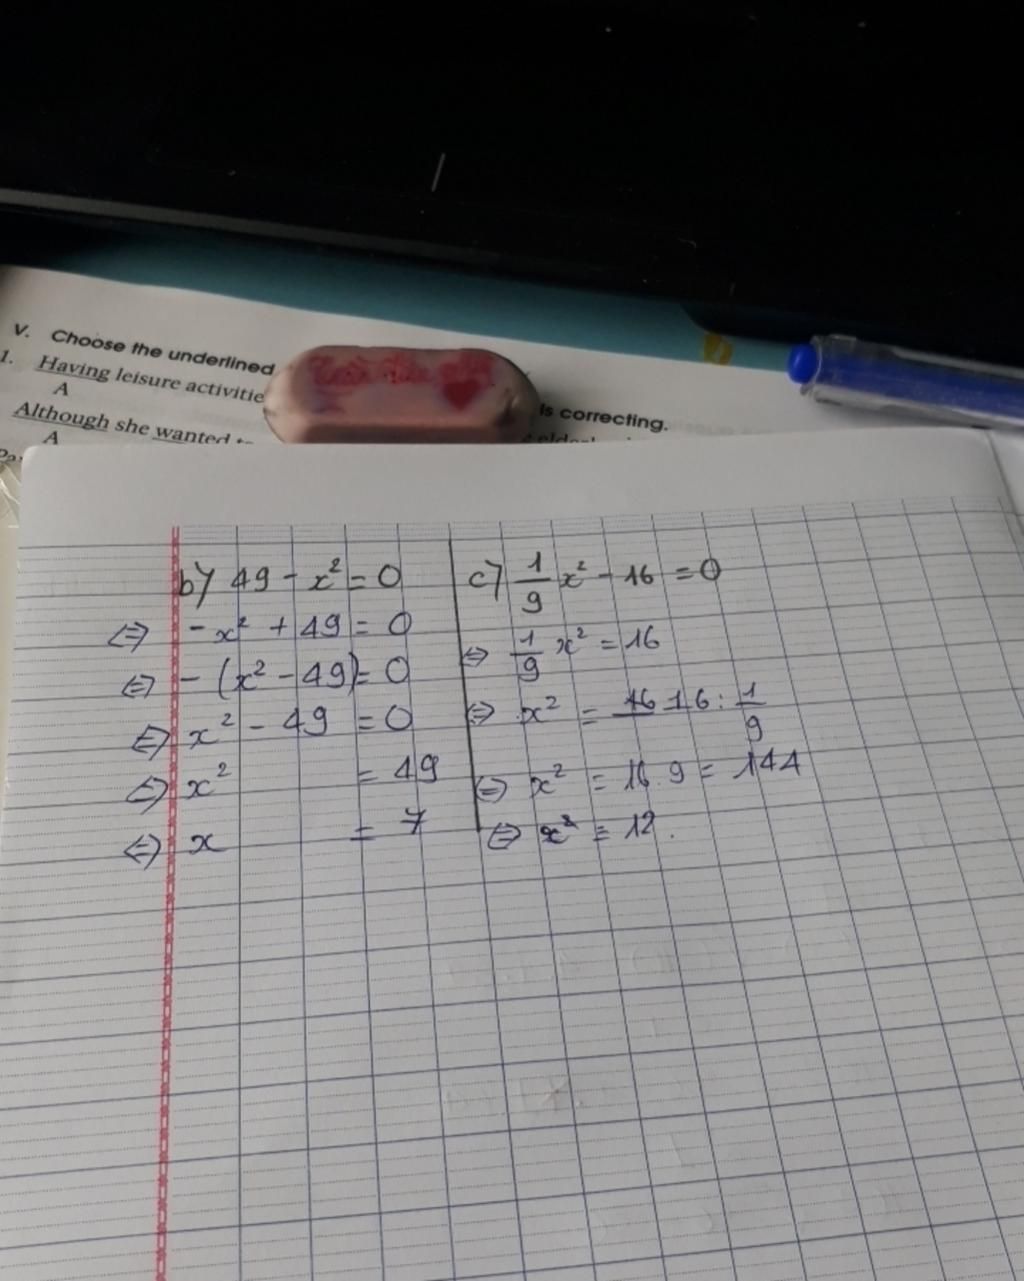 V. Choose the underlined
is correcting.
1. Having leisure activitie
A
Although she wanted
A
b) 49 - x² = 0
⇔ - x² + 49 = 0
⇔ - (x² - 49) = 0
⇔ x² - 49 = 0
⇔ x² = 49
⇔ x = 7
c) 1/9 x² - 16 = 0
⇔ 1/9 x² = 16
⇔ x² = 16 : 1/9
⇔ x² = 16.9 = 144
⇔ x = 12.